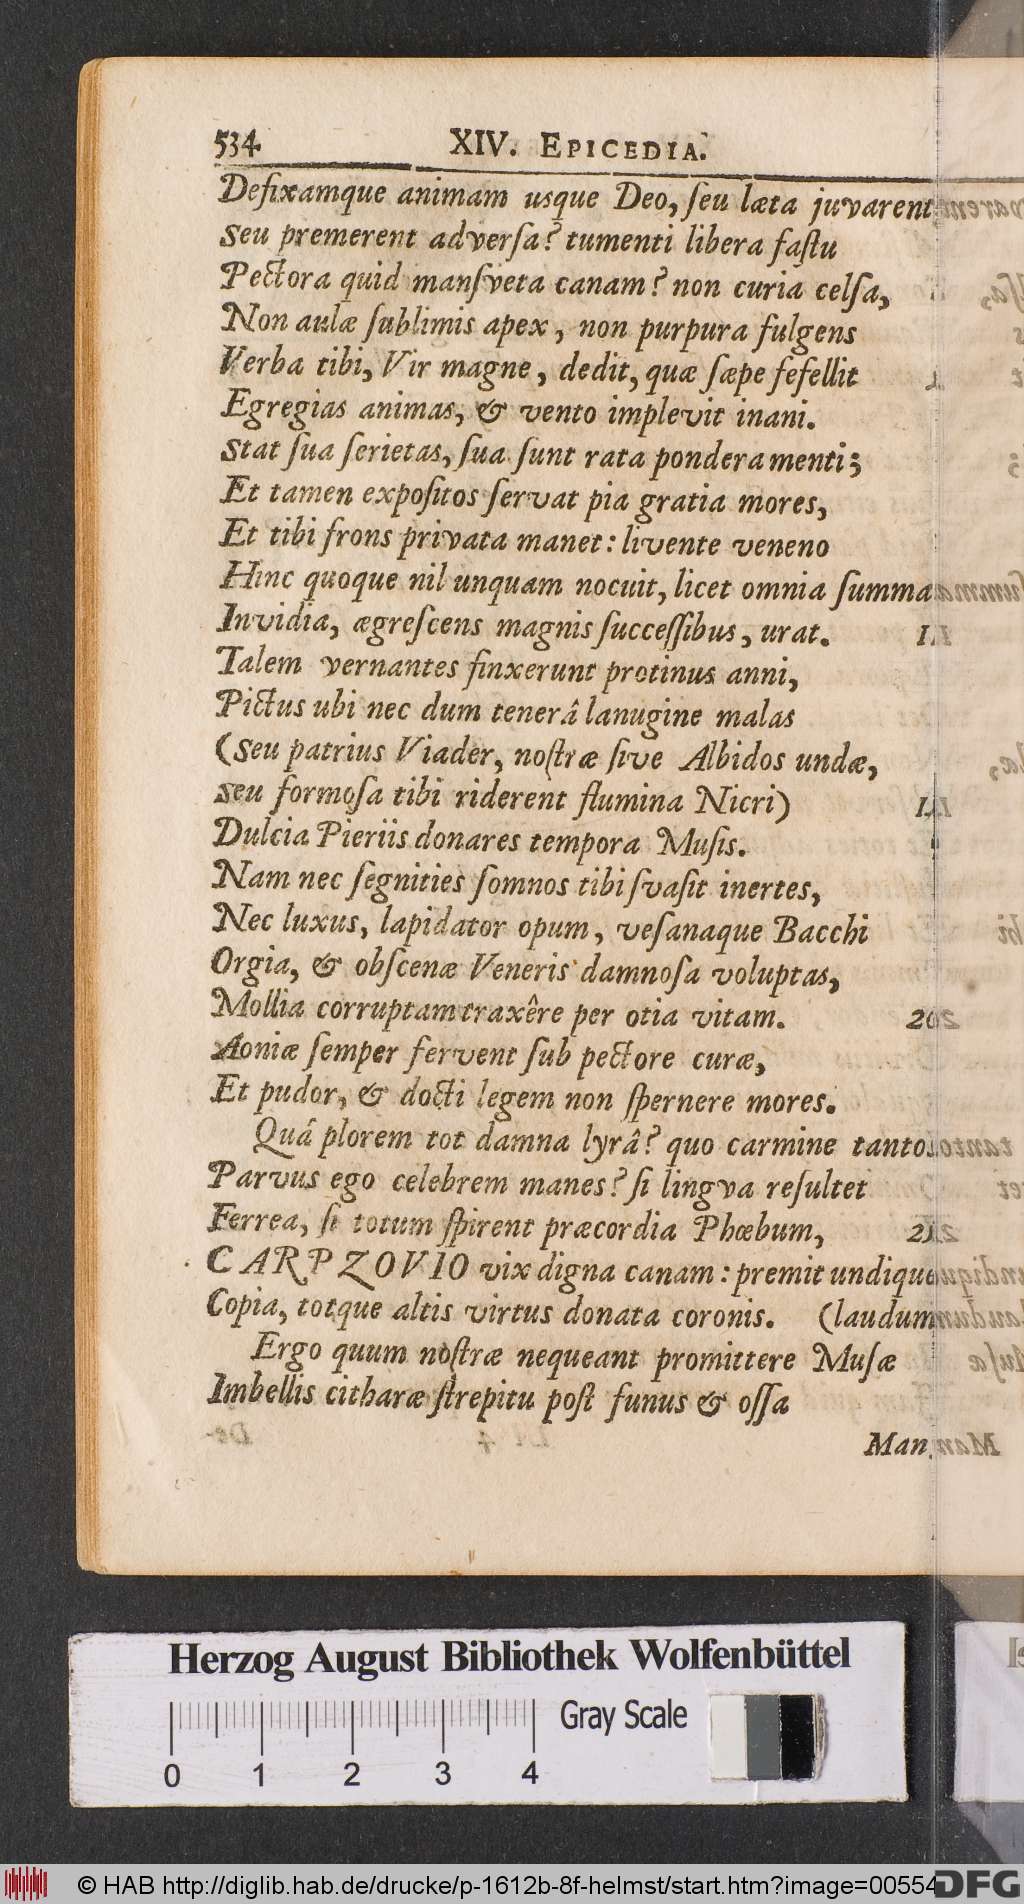 534 XIV. EPICEDIA.
Defixamque animam usque Deo, ſeu læta juvarent,
Seu premerent adverſa? tumenti libera faſtu
Pectora quid manſveta canam? non curia celſa,
Non aulæ ſublimis apex, non purpura fulgens
Verba tibi, Vir magne, dedit, quæ ſæpe fefellit
Egregias animas, & vento implevit inani.
Stat ſua ſerietas, ſua ſunt rata pondera menti;
Et tamen expoſitos ſervat pia gratia mores,
Et tibi frons privata manet: livente veneno
Hinc quoque nil unquam nocuit, licet omnia ſumma
Invidia, ægreſcens magnis ſucceſſibus, urat.
Talem vernantes finxerunt protinus anni,
Pictus ubi nec dum tenerâ lanugine malas
(Seu patrius Viader, noſtræ ſive Albidos undæ,
Seu formoſa tibi riderent flumina Nicri)
Dulcia Pieriis donares tempora Muſis.
Nam nec ſegnities ſomnos tibi ſvaſit inertes,
Nec luxus, lapidator opum, veſanaque Bacchi
Orgia, & obſcenæ Veneris damnoſa voluptas,
Mollia corruptam traxêre per otia vitam.
Aoniæ ſemper fervent ſub pectore curæ,
Et pudor, & docti legem non ſpernere mores.
Quâ plorem tot damna lyrâ? quo carmine tantos
Parvus ego celebrem manes? ſi lingva reſultet
Ferrea, ſi totum ſpirent præcordia Phœbum,
CARPZOVIO vix digna canam: premit undique
Copia, totque altis virtus donata coronis. (laudum
Ergo quum noſtræ nequeant promittere Muſæ
Imbellis citharæ ſtrepitu poſt funus & oſſa
Man
Herzog August Bibliothek Wolfenbüttel
Gray Scale
0 1 2 3 4
© HAB http://diglib.hab.de/drucke/p-1612b-8f-helmst/start.htm?image=00554
DFG